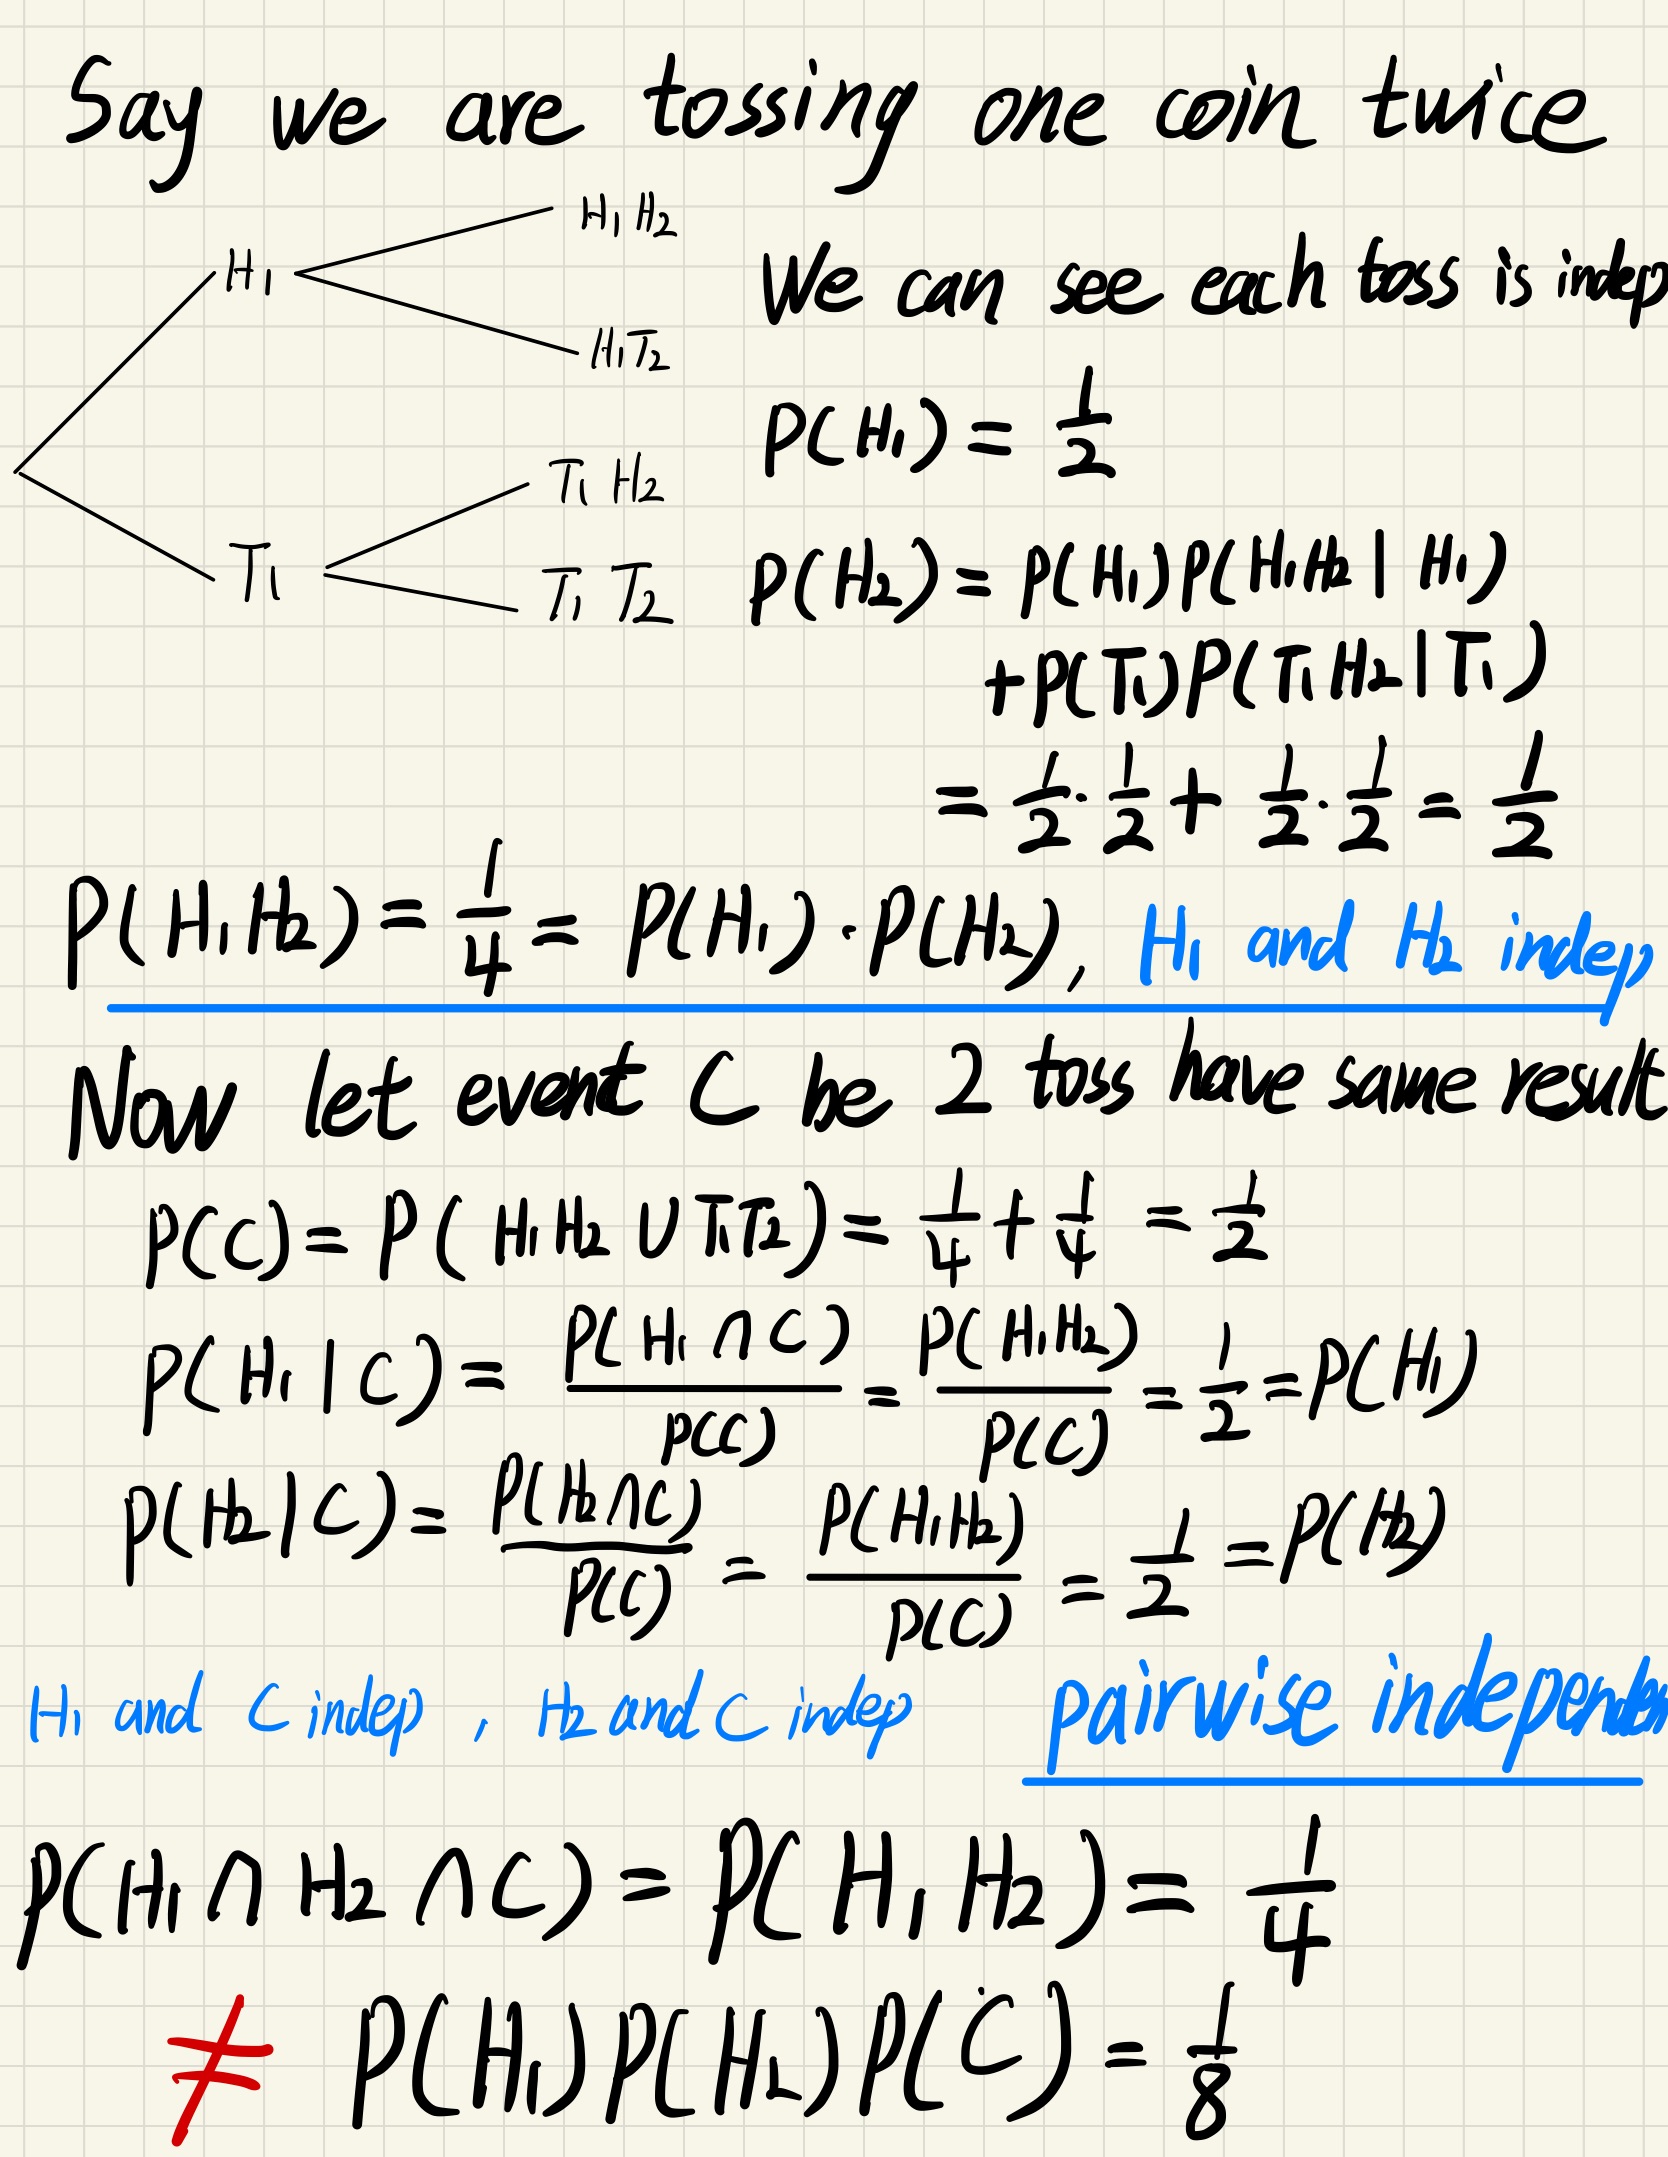 Say we are tossing one coin twice
H₁ H₂
H₁
H₁T₂
T₁ H₂
T₁
T₁ T₂
We can see each toss is indep
P(H₁) = 1/2
P(H₂) = P(H₁)P(H₁H₂ | H₁)
+P(T₁)P(T₁H₂|T₁)
= 1/2 · 1/2 + 1/2 · 1/2 = 1/2
P(H₁H₂) = 1/4 = P(H₁)·P(H₂), H₁ and H₂ indep
Now let event C be 2 toss have same result
P(C) = P(H₁H₂ ∪ T₁T₂) = 1/4 + 1/4 = 1/2
P(H₁ | C) = P(H₁ ∩ C)/P(C) = P(H₁H₂)/P(C) = 1/2 = P(H₁)
P(H₂ | C) = P(H₂ ∩ C)/P(C) = P(H₁H₂)/P(C) = 1/2 = P(H₂)
H₁ and C indep, H₂ and C indep pairwise
P(H₁ ∩ H₂ ∩ C) = P(H₁ H₂) = 1/4
≠ P(H₁)P(H₂)P(C) = 1/8